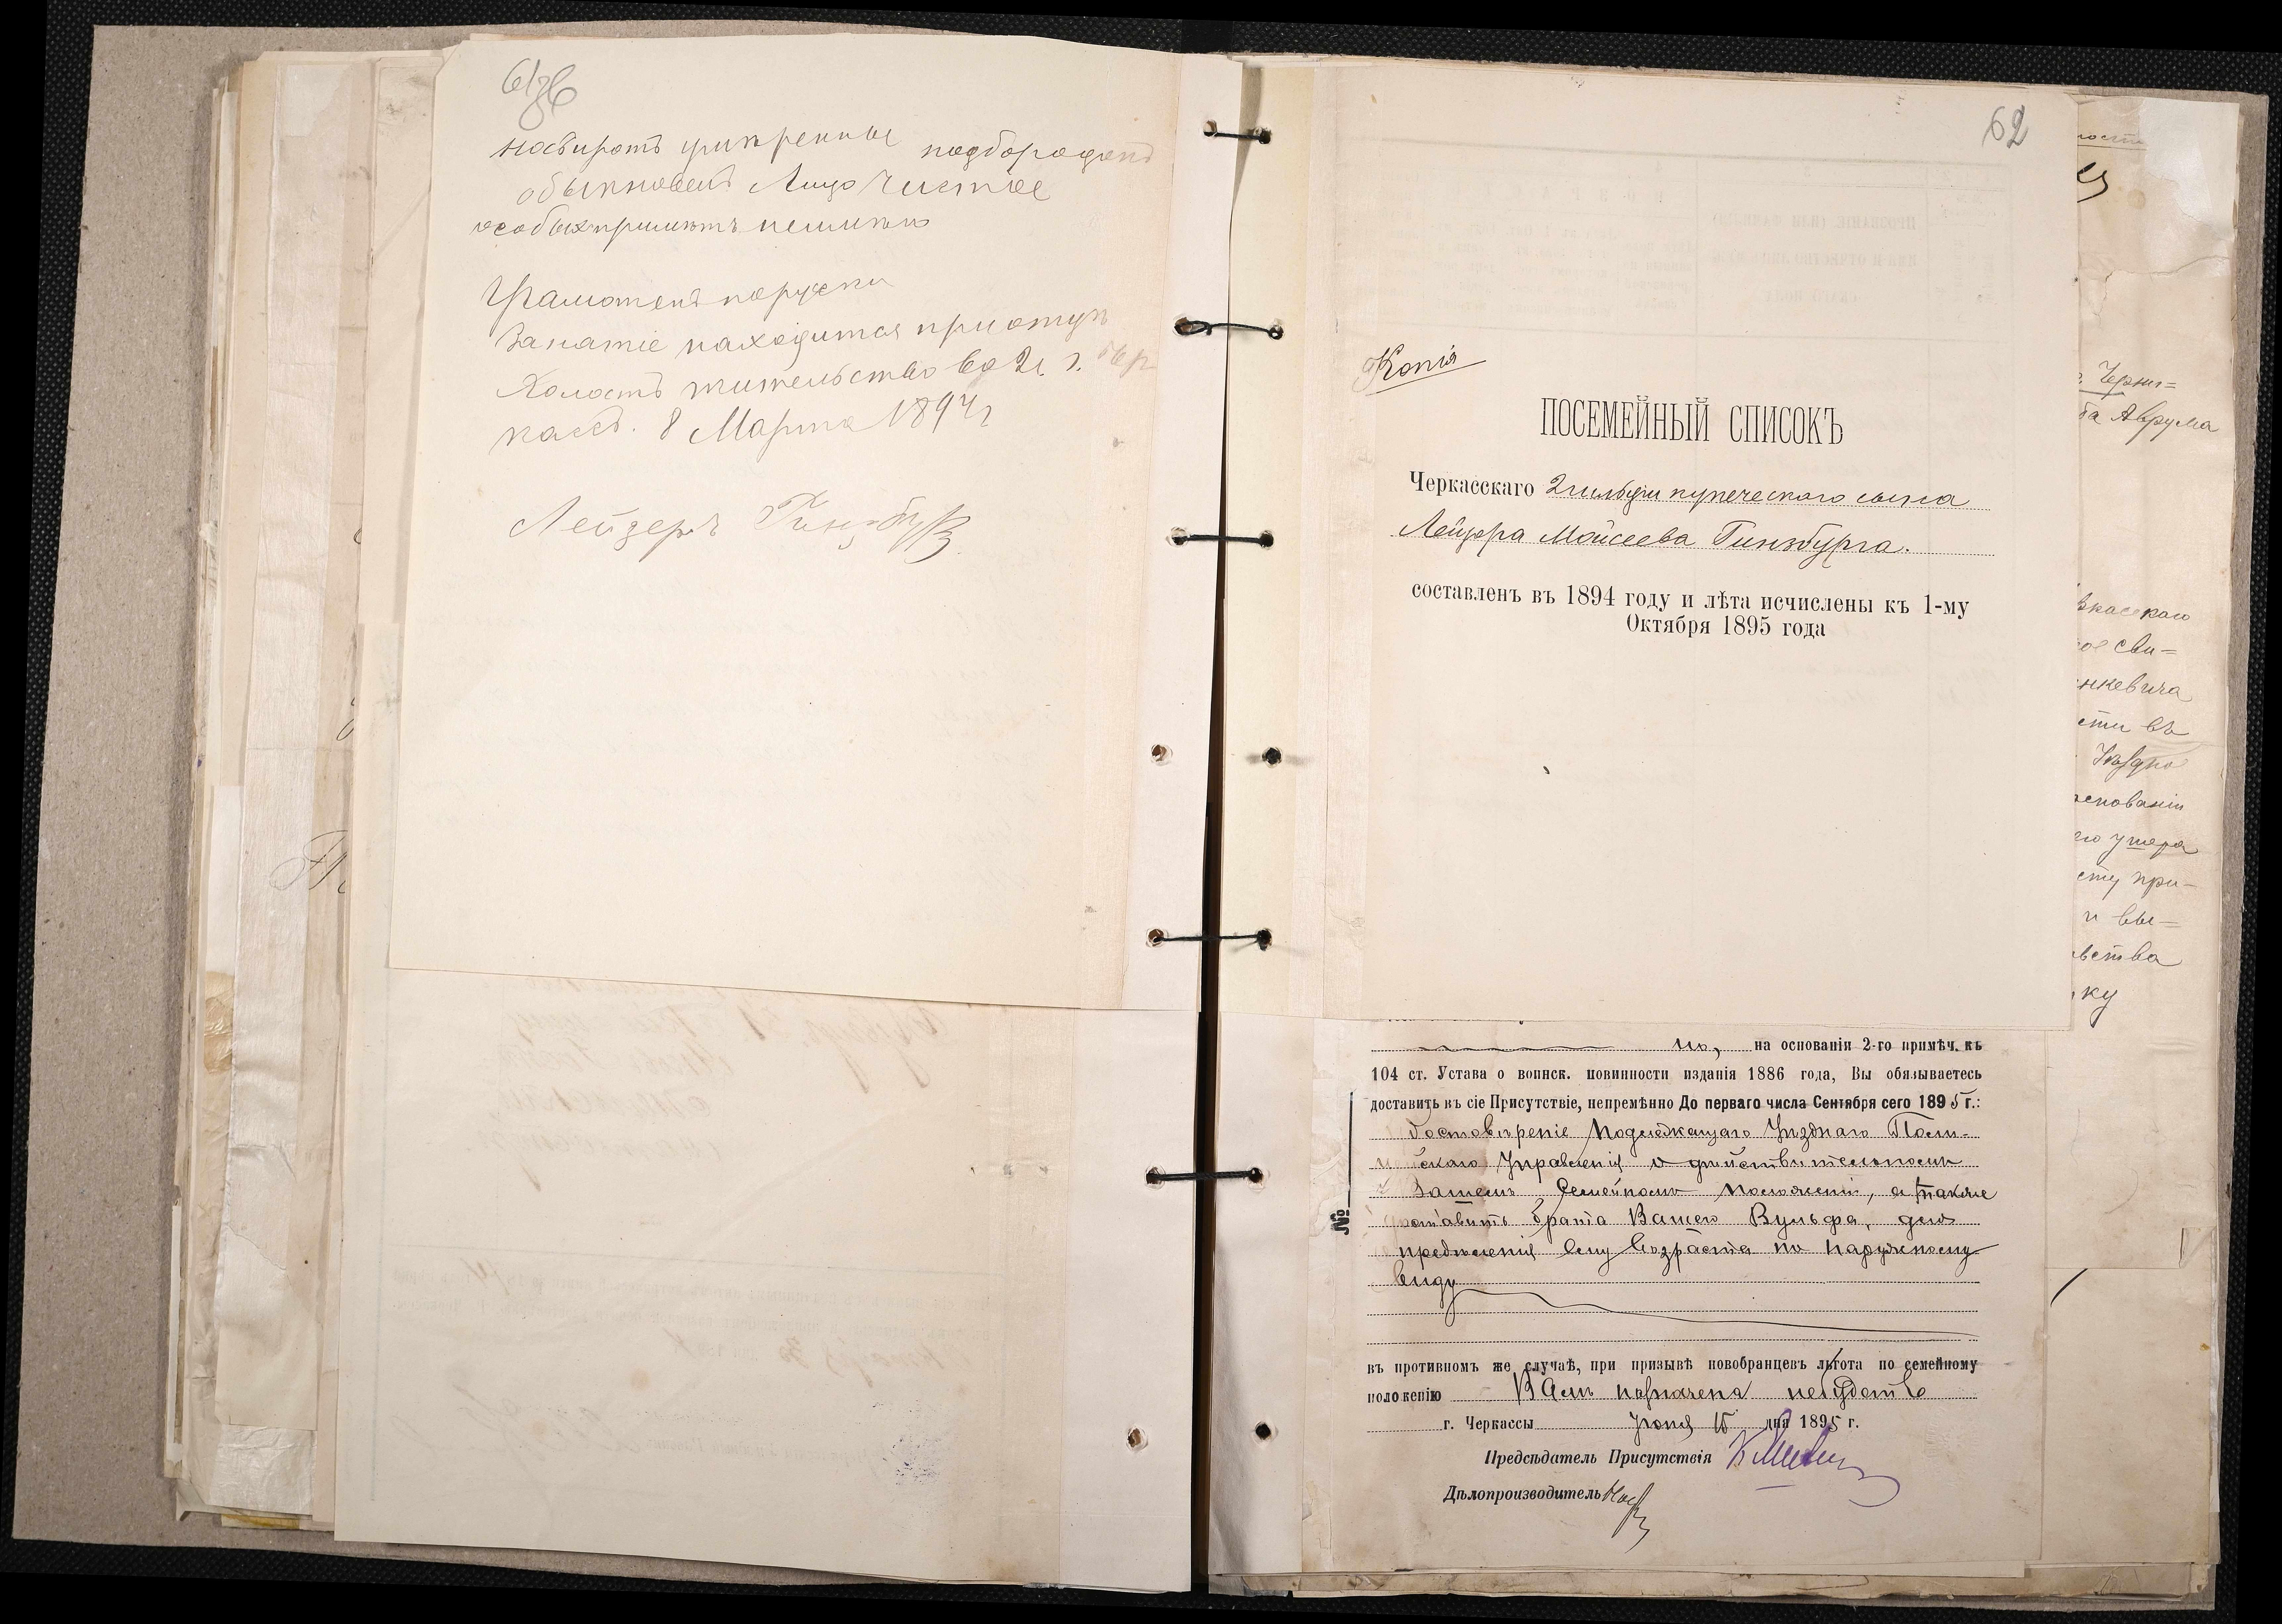 61 об
носъ и ротъ умѣренные подбородокъ
обыкновенъ Лицо чистое
особыхъ примѣтъ неимѣю
Грамотенъ по руски
Занатіе находится при отцѣ
Холостъ жительство во 2й г. Чер
касс. 8 Марта 1894 г
Лейзеръ Гинзбург
62
Копія
ПОСЕМЕЙНЫЙ СПИСОКЪ
Черкасскаго 2 гильдіи купеческаго сына
Лейзера Мойсеева Гинзбурга.
составленъ въ 1894 году и лѣта исчислены къ 1-му
Октября 1895 года
но, на основаніи 2-го примѣч. къ
104 ст. Устава о воинск. повинности изданія 1886 года, Вы обязываетесь
доставить въ сіе Присутствіе, непремѣнно До перваго числа Сентября сего 1895 г.:
Удостовѣреніе Подлежащаго Уѣзднаго Поли-
цейскаго Управленія о дѣйствительномъ
Вашемъ Семейномъ положеніи, а также
доставить брата Вашего Вульфа, для
опредѣленія ему возраста по наружному
виду
въ противномъ же случаѣ, при призывѣ новобранцевъ льгота по семейному
положенію Вамъ назначена небудетъ
г. Черкассы Іюня 15 дня 1895 г.
Предсѣдатель Присутствія
Дѣлопроизводитель
№
Черни=
Аврума
сви=
нкевича
сти въ
Уѣздно
основаніи
утера
при-
и вы=
ьства
ку